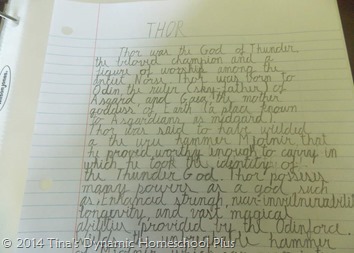 THOR
Thor was the God of Thunder
the beloved champion and a
figure of worship among the
Norse. Thor was born to
Odin the ruler (sky-father) of
Asgard and Gaea the mother
goddess of Earth (a place known
to Asgardians, as midgard).
Thor was said to have wielded
a the uru hammer Mjolnir that
he proved worthy enough to carry in
which he took the identity of
the Thunder God. Thor possesses
many powers as a god such
as Enhanced strengh, near-invulnerabilit
longevity, and vast magical
abilities provided by the Odinforce.
hammer
of Mjolnir which
© 2014 Tina's Dynamic Homeschool Plus